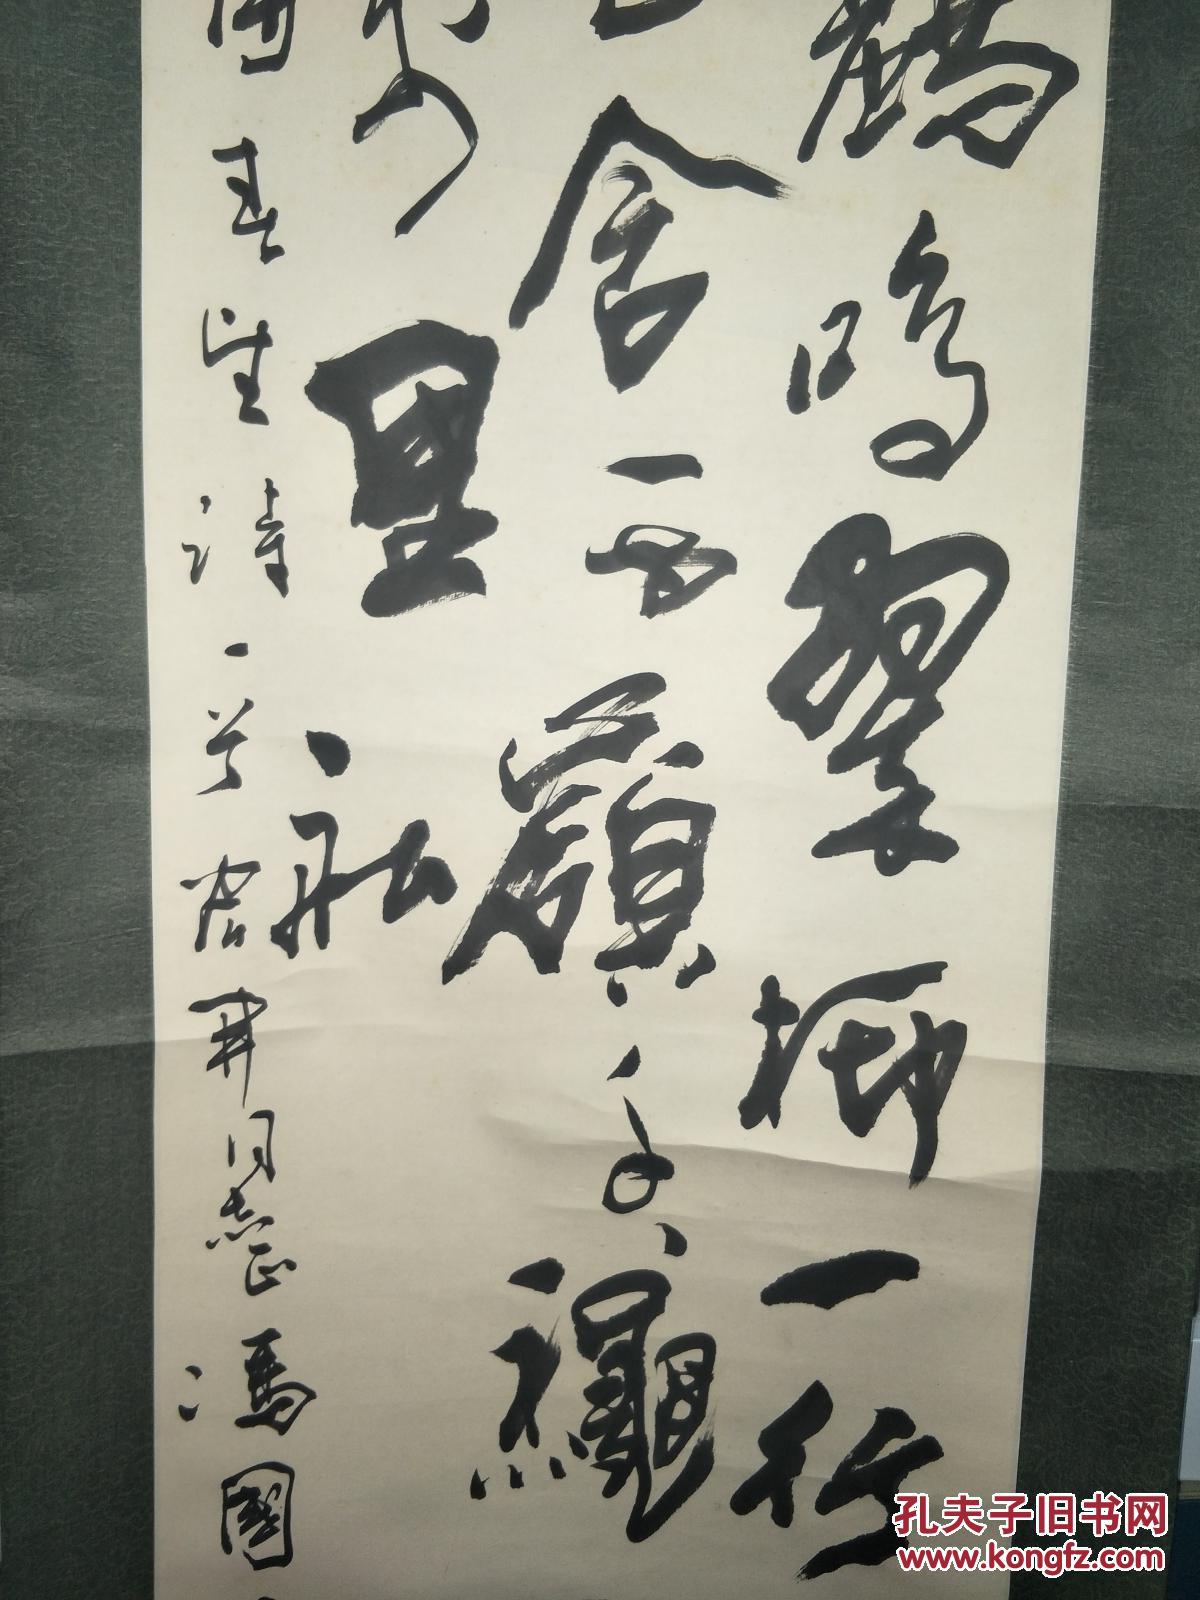 鸝鳴翠柳一行
含西嶺千龝
万里船
春望詩一首宏井同志正馮國
孔夫子旧书网
www.kongfz.com